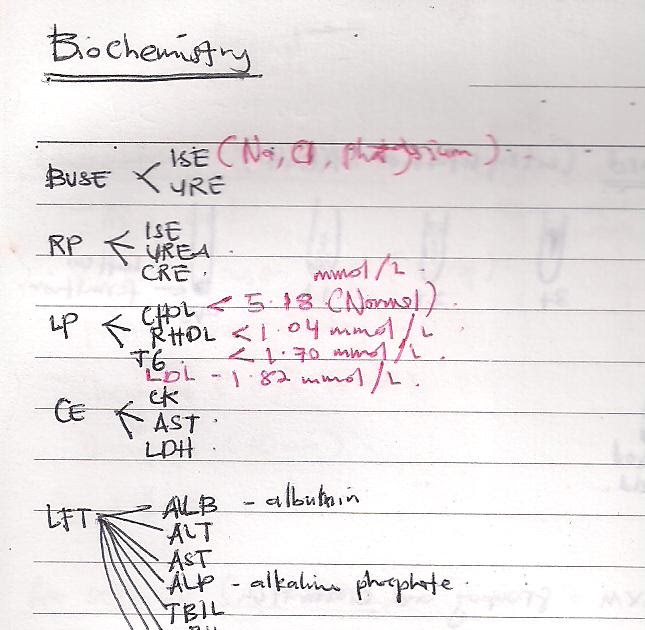 Biochemistry
BUSE < ISE (Na, Cl, phatassium)
URE
RP < ISE
UREA
CRE.
mmol/L.
LP < CHOL < 5.18 (Normal).
RHDL < 1.04 mmol/L
TG < 1.70 mmol/L.
LDL - 1.82 mmol/L.
CE < CK
AST.
LDH.
LFT ALB - albumin
ALT
AST
ALP - alkaline phosphate.
TBIL